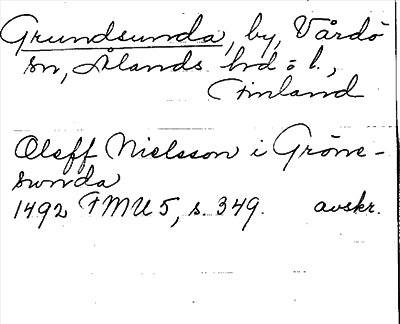 Grundsunda, by, Vårdö
sn, Ålands hd o l.,
Finland
Oleff Nielsson i Gröne-
sunda
1492 FMU 5, s. 349. avskr.